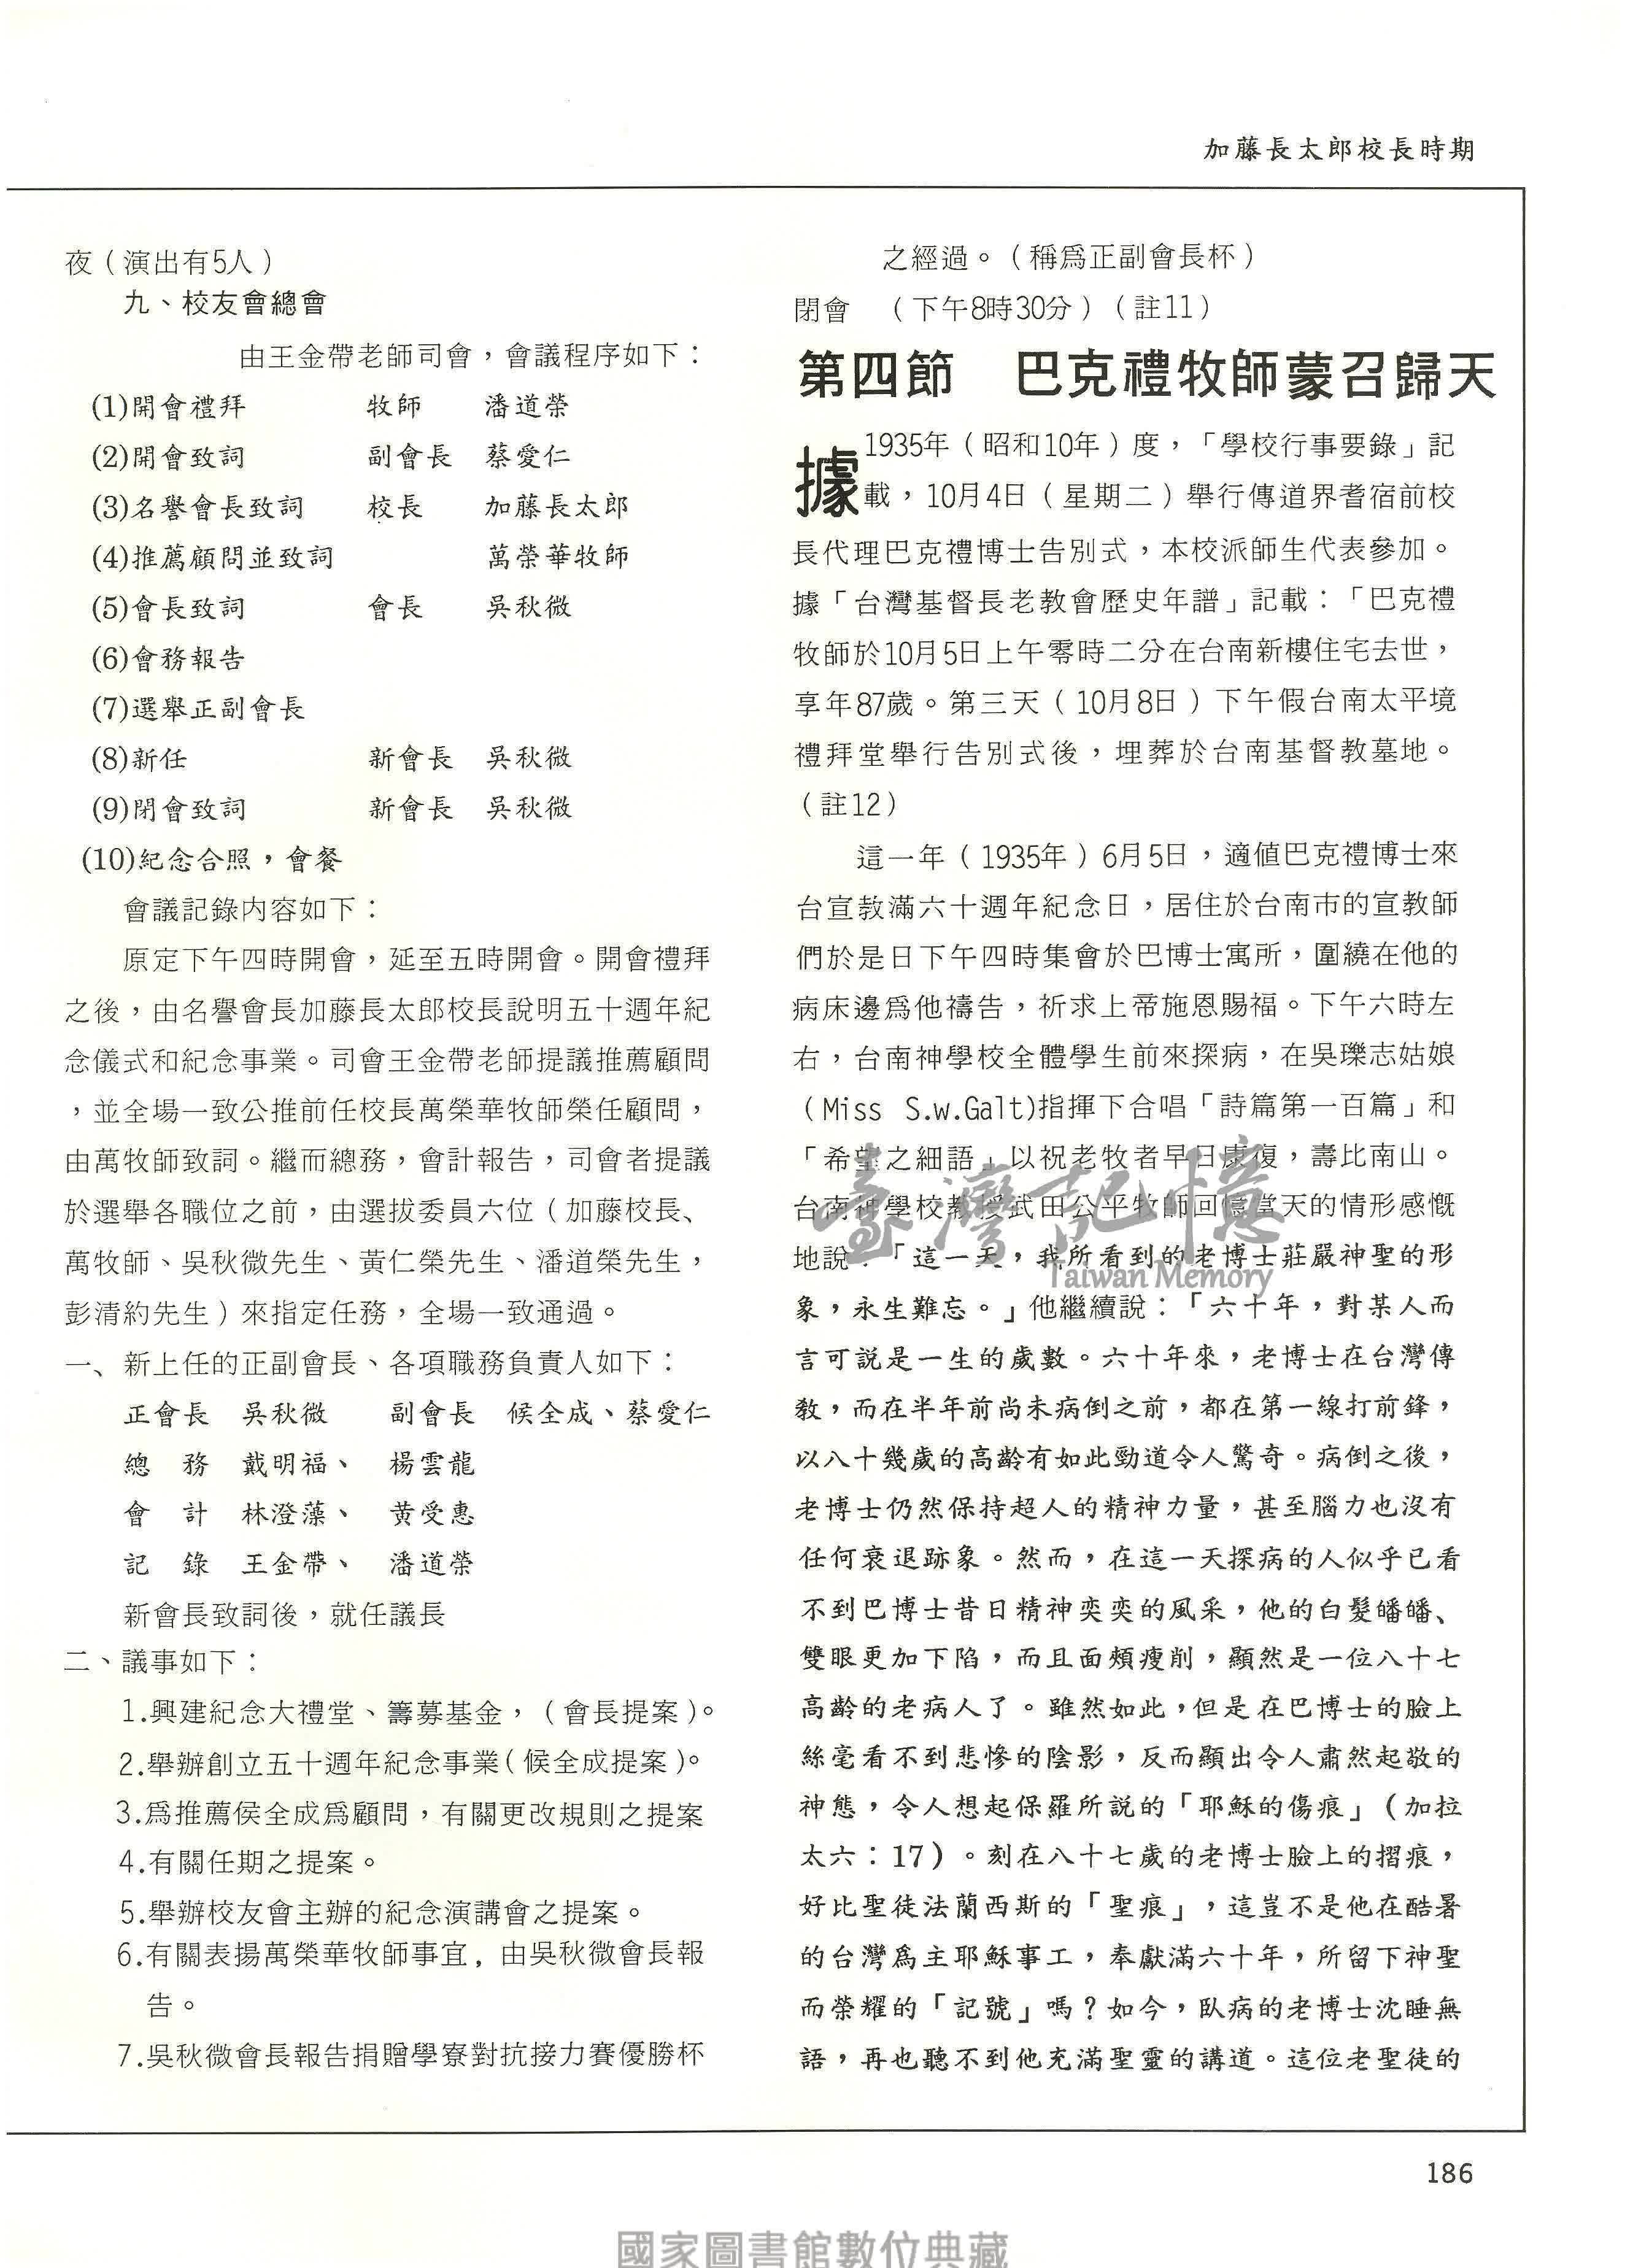 加藤長太郎校長時期
夜（演出有5人）
九、校友會總會
由王金帶老師司會，會議程序如下：
(1)開會禮拜 牧師 潘道榮
(2)開會致詞 副會長 蔡愛仁
(3)名譽會長致詞 校長 加藤長太郎
(4)推薦顧問並致詞 萬榮華牧師
(5)會長致詞 會長 吳秋微
(6)會務報告
(7)選舉正副會長
(8)新任 新會長 吳秋微
(9)閉會致詞 新會長 吳秋微
(10)紀念合照，會餐
會議記錄內容如下：
原定下午四時開會，延至五時開會。開會禮拜
之後，由名譽會長加藤長太郎校長說明五十週年紀
念儀式和紀念事業。司會王金帶老師提議推薦顧問
，並全場一致公推前任校長萬榮華牧師榮任顧問，
由萬牧師致詞。繼而總務，會計報告，司會者提議
於選舉各職位之前，由選拔委員六位（加藤校長、
萬牧師、吳秋微先生、黃仁榮先生、潘道榮先生，
彭清約先生）來指定任務，全場一致通過。
一、新上任的正副會長、各項職務負責人如下：
正會長 吳秋微 副會長 候全成、蔡愛仁
總 務 戴明福、 楊雲龍
會 計 林澄藻、 黃受惠
記 錄 王金帶、 潘道榮
新會長致詞後，就任議長
二、議事如下：
1.興建紀念大禮堂、籌募基金，（會長提案）。
2.舉辦創立五十週年紀念事業（候全成提案）。
3.爲推薦侯全成爲顧問，有關更改規則之提案
4.有關任期之提案。
5.舉辦校友會主辦的紀念演講會之提案。
6.有關表揚萬榮華牧師事宜，由吳秋微會長報
告。
7.吳秋微會長報告捐贈學寮對抗接力賽優勝杯
之經過。（稱爲正副會長杯）
閉會 （下午8時30分）（註11）
第四節 巴克禮牧師蒙召歸天
據1935年（昭和10年）度，「學校行事要錄」記
載，10月4日（星期二）舉行傳道界耆宿前校
長代理巴克禮博士告別式，本校派師生代表參加。
據「台灣基督長老教會歷史年譜」記載：「巴克禮
牧師於10月5日上午零時二分在台南新樓住宅去世，
享年87歲。第三天（10月8日）下午假台南太平境
禮拜堂舉行告別式後，埋葬於台南基督教墓地。
（註12）
這一年（1935年）6月5日，適值巴克禮博士來
台宣教滿六十週年紀念日，居住於台南市的宣教師
們於是日下午四時集會於巴博士寓所，圍繞在他的
病床邊爲他禱告，祈求上帝施恩賜福。下午六時左
右，台南神學校全體學生前來探病，在吳瓅志姑娘
（Miss S.w.Galt)指揮下合唱「詩篇第一百篇」和
「希望之細語」以祝老牧者早日康復，壽比南山。
台南神學校教授武田公平牧師回憶當天的情形感慨
地說：「這一天，我所看到的老博士莊嚴神聖的形
象，永生難忘。」他繼續說：「六十年，對某人而
言可說是一生的歲數。六十年來，老博士在台灣傳
教，而在半年前尚未病倒之前，都在第一線打前鋒，
以八十幾歲的高齡有如此勁道令人驚奇。病倒之後，
老博士仍然保持超人的精神力量，甚至腦力也沒有
任何衰退跡象。然而，在這一天探病的人似乎已看
不到巴博士昔日精神奕奕的風采，他的白髮皤皤、
雙眼更加下陷，而且面頰瘦削，顯然是一位八十七
高齡的老病人了。雖然如此，但是在巴博士的臉上
絲毫看不到悲慘的陰影，反而顯出令人肅然起敬的
神態，令人想起保羅所說的「耶穌的傷痕」（加拉
太六：17）。刻在八十七歲的老博士臉上的摺痕，
好比聖徒法蘭西斯的「聖痕」，這豈不是他在酷暑
的台灣爲主耶穌事工，奉獻滿六十年，所留下神聖
而榮耀的「記號」嗎？如今，臥病的老博士沈睡無
語，再也聽不到他充滿聖靈的講道。這位老聖徒的
臺灣記憶
Taiwan Memory
186
國家圖書館數位典藏